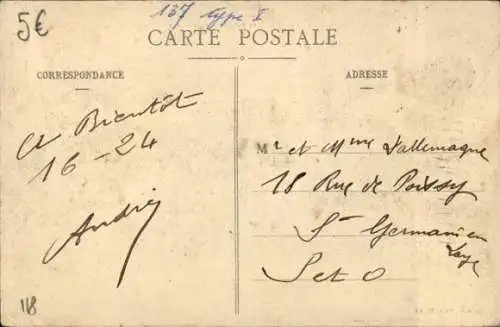 5€
137 type I
CARTE POSTALE
CORRESPONDANCE
ADRESSE
A Bientôt
16-24
André
Mr et Mme Dallemagne
18 Rue de Poissy
St Germain en
Laye
S et O
118